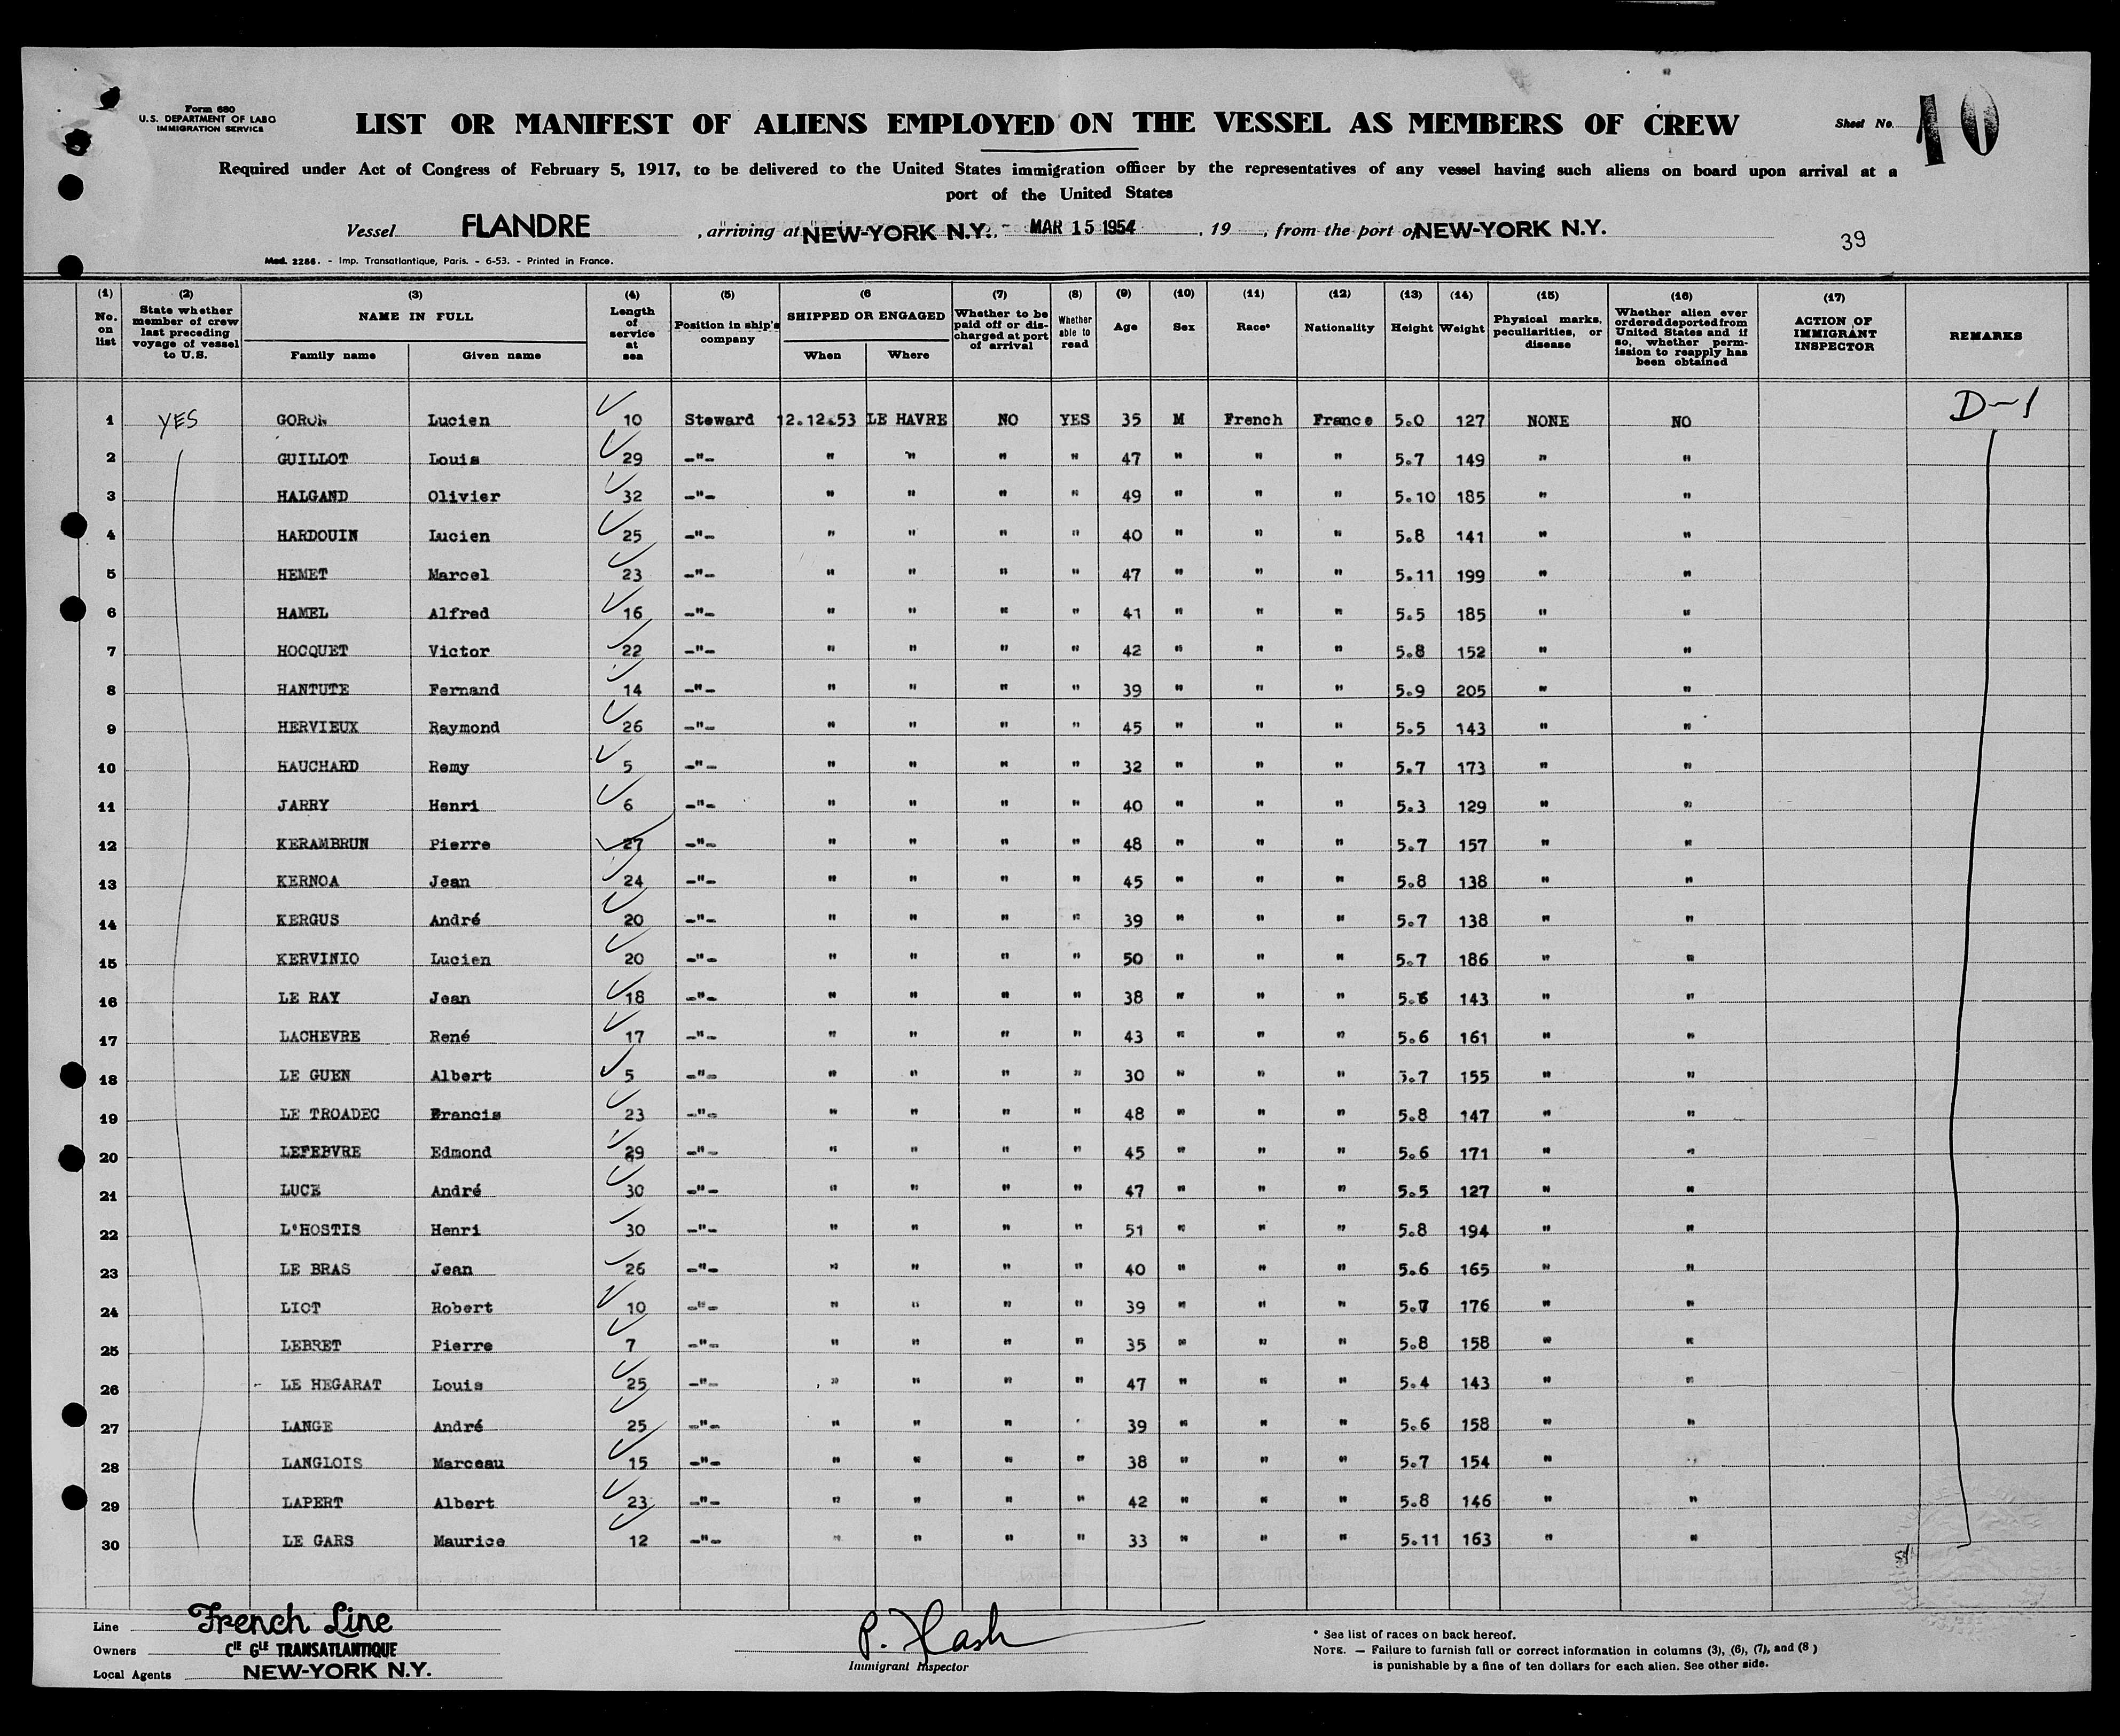 Form 680
U.S. DEPARTMENT OF LABO
IMMIGRATION SERVICE
LIST OR MANIFEST OF ALIENS EMPLOYED ON THE VESSEL AS MEMBERS OF CREW
Sheet No. 10
Required under Act of Congress of February 5, 1917, to be delivered to the United States immigration officer by the representatives of any vessel having such aliens on board upon arrival at a
port of the United States
Vessel FLANDRE, arriving at NEW-YORK N.Y., - MAR 15 1954, 19, from the port of NEW-YORK N.Y.
39
Mod. 2286. - Imp. Transatlantique, Paris. - 6-53. - Printed in France.
(1) No. on list
(2) State whether member of crew last preceding voyage of vessel to U.S.
(3) NAME IN FULL Family name Given name
(4) Length of service at sea
(5) Position in ship's company
(6 SHIPPED OR ENGAGED When Where
(7) Whether to be paid off or discharged at port of arrival
(8) Whether able to read
(9) Age
(10) Sex
(11) Race*
(12) Nationality
(13) Height
(14) Weight
(15) Physical marks, peculiarities, or disease
(16) Whether alien ever ordered deported from United States and if so, whether permission to reapply has been obtained
(17) ACTION OF IMMIGRANT INSPECTOR
REMARKS
D-1
1 YES GORON Lucien 10 Steward 12.12.53 LE HAVRE NO YES 35 M French France 5.0 127 NONE NO
2 GUILLOT Louis 29 -"- " " " " 47 " " " 5.7 149 " "
3 HALGAND Olivier 32 -"- " " " " 49 " " " 5.10 185 " "
4 HARDOUIN Lucien 25 -"- " " " " 40 " " " 5.8 141 " "
5 HEMET Marcel 23 -"- " " " " 47 " " " 5.11 199 " "
6 HAMEL Alfred 16 -"- " " " " 41 " " " 5.5 185 " "
7 HOCQUET Victor 22 -"- " " " " 42 " " " 5.8 152 " "
8 HANTUTE Fernand 14 -"- " " " " 39 " " " 5.9 205 " "
9 HERVIEUX Raymond 26 -"- " " " " 45 " " " 5.5 143 " "
10 HAUCHARD Remy 5 -"- " " " " 32 " " " 5.7 173 " "
11 JARRY Henri 6 -"- " " " " 40 " " " 5.3 129 " "
12 KERAMBRUN Pierre 27 -"- " " " " 48 " " " 5.7 157 " "
13 KERNOA Jean 24 -"- " " " " 45 " " " 5.8 138 " "
14 KERGUS André 20 -"- " " " " 39 " " " 5.7 138 " "
15 KERVINIO Lucien 20 -"- " " " " 50 " " " 5.7 186 " "
16 LE RAY Jean 18 -"- " " " " 38 " " " 5.6 143 " "
17 LACHEVRE René 17 -"- " " " " 43 " " " 5.6 161 " "
18 LE GUEN Albert 5 -"- " " " " 30 " " " 5.7 155 " "
19 LE TROADEC Francis 23 -"- " " " " 48 " " " 5.8 147 " "
20 LEFEBVRE Edmond 29 -"- " " " " 45 " " " 5.6 171 " "
21 LUCE André 30 -"- " " " " 47 " " " 5.5 127 " "
22 L'HOSTIS Henri 30 -"- " " " " 51 " " " 5.8 194 " "
23 LE BRAS Jean 26 -"- " " " " 40 " " " 5.6 165 " "
24 LIOT Robert 10 -"- " " " " 39 " " " 5.7 176 " "
25 LEBRET Pierre 7 -"- " " " " 35 " " " 5.8 158 " "
26 LE HEGARAT Louis 25 -"- " " " " 47 " " " 5.4 143 " "
27 LANGE André 25 -"- " " " ' 39 " " " 5.6 158 " "
28 LANGLOIS Marceau 15 -"- " " " " 38 " " " 5.7 154 "
29 LAPERT Albert 23 -"- " " " " 42 " " " 5.8 146 " "
30 LE GARS Maurice 12 -"- " " " " 33 " " " 5.11 163 " "
Line French Line
Owners CIE GLE TRANSATLANTIQUE
Local Agents NEW-YORK N.Y.
Immigrant Inspector
* See list of races on back hereof.
NOTE. — Failure to furnish full or correct information in columns (3), (6), (7), and (8)
is punishable by a fine of ten dollars for each alien. See other side.